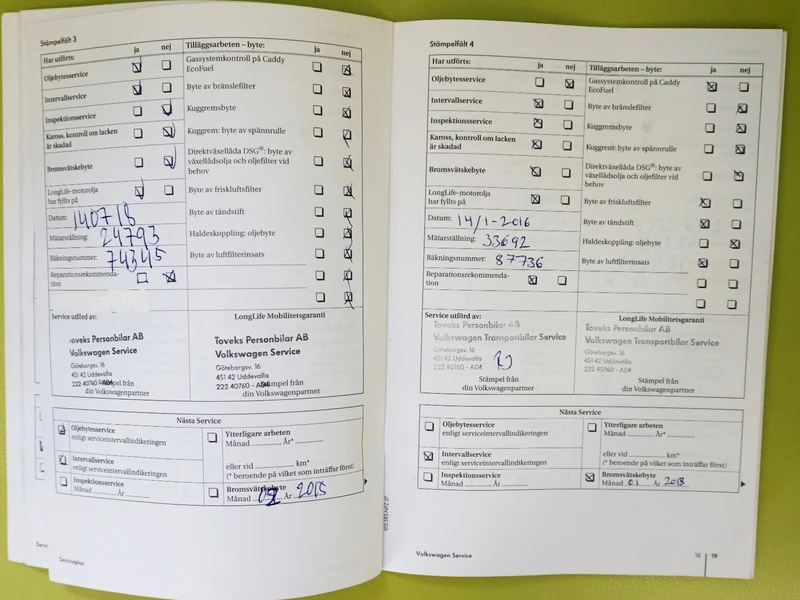 Stämpelfält 3
Har utförts: ja nej Tilläggsarbeten – byte: ja nej
Oljebytesservice
Intervallservice
Inspektionsservice
Kaross, kontroll om lacken
är skadad
Bromsvätskebyte
LongLife-motorolja
har fyllts på
Datum: 140718
Mätarställning: 24793
Räkningsnummer: 74345
Reparationsrekommenda-
tion
Gassystemkontroll på Caddy
EcoFuel
Byte av bränslefilter
Kuggremsbyte
Kuggrem: byte av spännrulle
Direktväxellåda DSG®: byte av
växellådsolja och oljefilter vid
behov
Byte av friskluftsfilter
Byte av tändstift
Haldexkoppling: oljebyte
Byte av luftfilterinsats
Service utförd av:
Toveks Personbilar AB
Volkswagen Service
Göteborgsv. 16
451 42 Uddevalla
222 40760
Stämpel från
din Volkswagenpartner
LongLife Mobilitetsgaranti
Toveks Personbilar AB
Volkswagen Service
Göteborgsv. 16
451 42 Uddevalla
222 40760 - A04
Stämpel från
din Volkswagenpartner
Nästa Service
Oljebytesservice
enligt serviceintervallindikeringen
Intervallservice
enligt serviceintervallindikeringen
Inspektionsservice
Månad .......... År ..........
Ytterligare arbeten
Månad .............. År* ..............
eller vid .................. km*
(* beroende på vilket som inträffar först)
Bromsvätskebyte
Månad 07 År 2015
Serviceplan
Stämpelfält 4
Har utförts: ja nej Tilläggsarbeten – byte: ja nej
Oljebytesservice
Intervallservice
Inspektionsservice
Kaross, kontroll om lacken
är skadad
Bromsvätskebyte
LongLife-motorolja
har fyllts på
Datum: 14/1-2016
Mätarställning: 33692
Räkningsnummer: 87736
Reparationsrekommenda-
tion
Gassystemkontroll på Caddy
EcoFuel
Byte av bränslefilter
Kuggremsbyte
Kuggrem: byte av spännrulle
Direktväxellåda DSG®: byte av
växellådsolja och oljefilter vid
behov
Byte av friskluftsfilter
Byte av tändstift
Haldexkoppling: oljebyte
Byte av luftfilterinsats
Service utförd av:
Toveks Personbilar AB
Volkswagen Transportbilar Service
Göteborgsv. 16
451 42 Uddevalla
222 40760 - A04
Stämpel från
din Volkswagenpartner
LongLife Mobilitetsgaranti
Toveks Personbilar AB
Volkswagen Transportbilar Service
Göteborgsv. 16
451 42 Uddevalla
222 40760 - A04
Stämpel från
din Volkswagenpartner
Nästa Service
Oljebytesservice
enligt serviceintervallindikeringen
Intervallservice
enligt serviceintervallindikeringen
Inspektionsservice
Månad .......... År ..........
Ytterligare arbeten
Månad .............. År* ..............
eller vid .................. km*
(* beroende på vilket som inträffar först)
Bromsvätskebyte
Månad 01 År 2018
Volkswagen Service
18 19